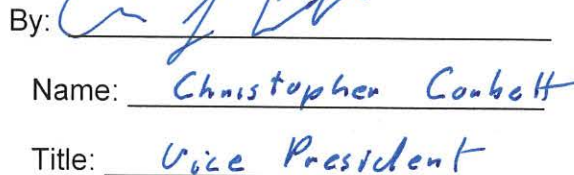 By:
Name: Christopher Corbett
Title: Vice President